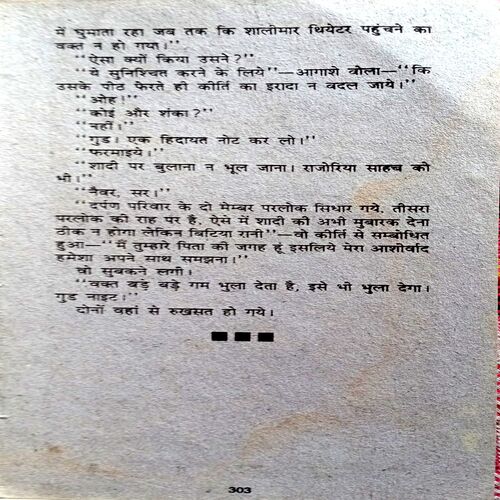 में घुमाता रहा जब तक कि शालीमार थियेटर पहुंचने का
वक्त न हो गया।''
''ऐसा क्यों किया उसने?''
''ये सुनिश्चित करने के लिये''—आगाशे बोला—''कि
उसके पीठ फेरते ही कीर्ति का इरादा न बदल जाये।''
''ओह!''
''कोई और शंका?''
''नहीं।''
''गुड। एक हिदायत नोट कर लो।''
''फरमाइये।''
''शादी पर बुलाना न भूल जाना। राजोरिया साहब को
भी।''
''नैवर, सर।''
''दर्पण परिवार के दो मेम्बर परलोक सिधार गये, तीसरा
परलोक की राह पर है, ऐसे में शादी की अभी मुबारक देना
ठीक न होगा लेकिन बिटिया रानी''—वो कीर्ति से सम्बोधित
हुआ—''मैं तुम्हारे पिता की जगह हूं इसलिये मेरा आशीर्वाद
हमेशा अपने साथ समझना।''
वो सुबकने लगी।
''वक्त बड़े बड़े गम भुला देता है, इसे भी भुला देगा।
गुड नाइट।''
दोनों वहां से रुखसत हो गये।
303